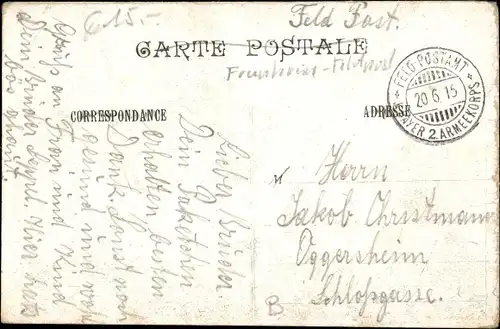 € 15.-
Feld Post.
CARTE POSTALE
FELD-POSTAMT
20.6.15
BAYER 2. ARMEEKORPS
CORRESPONDANCE
ADRESSE
Lieber Bruder.
Dein Paketchen
erhalten besten
Dank. Sonst noch
gesund und wohl
Gruß an Frau und Kind
Dein Bruder
Hier hats
bös ghaust.
Herrn
Jakob Christmann
Oggersheim
Schloßgasse.
B